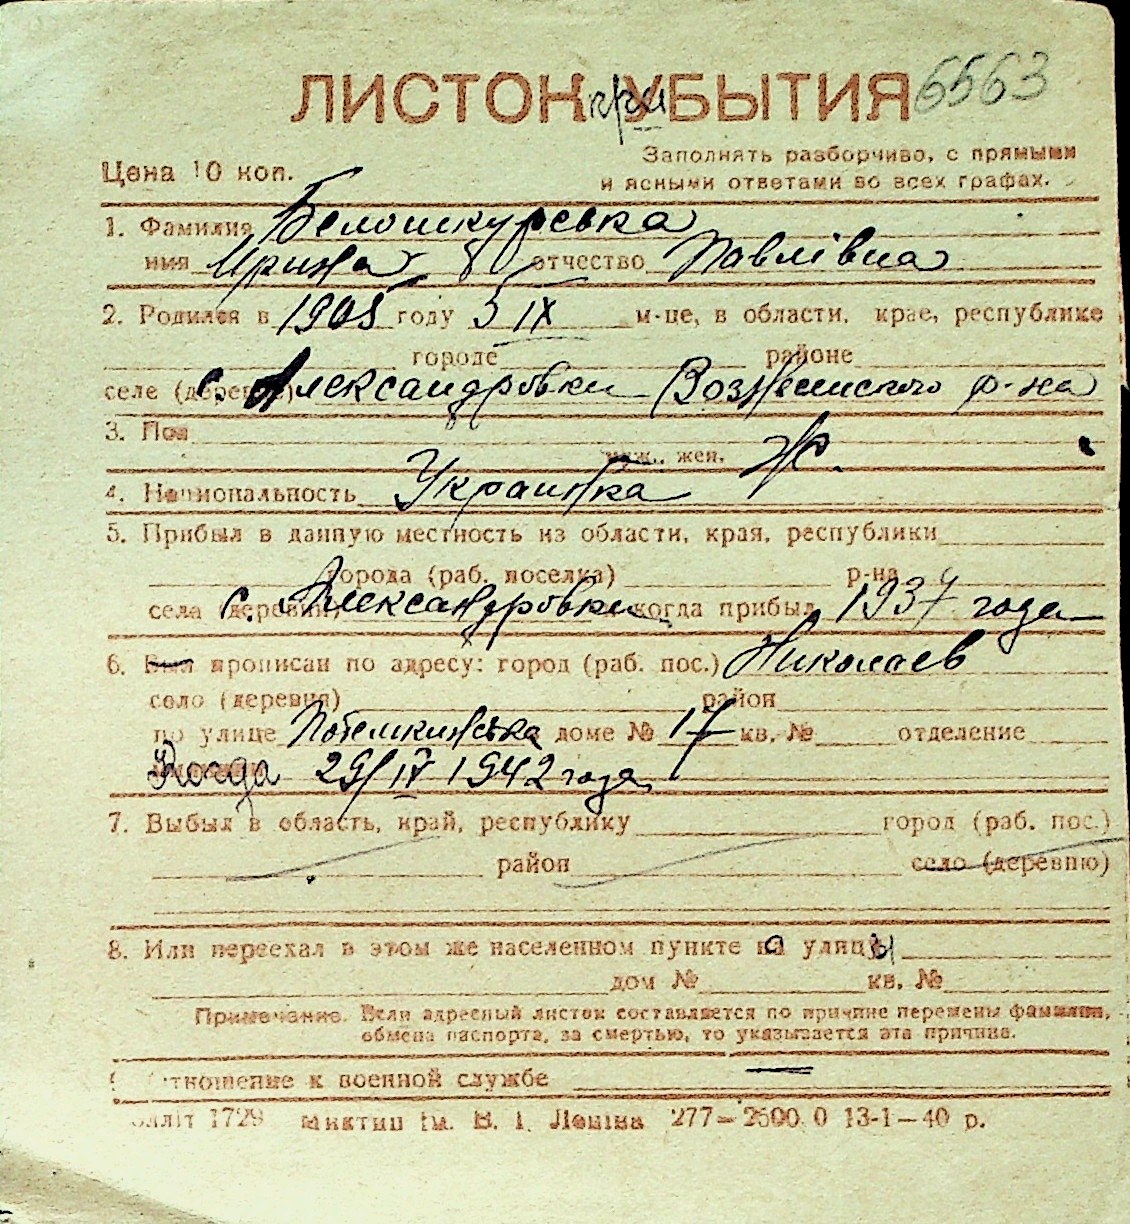 ЛИСТОК при УБЫТИЯ 6563
Цена 10 коп.
Заполнять разборчиво, с прямыми
и ясными ответами во всех графах.
1. Фамилия Белошкурська
имя Ирина отчество Павлівна
2. Родился в 1905 году 5 IX м-це, в области, крае, республике
городе районе
селе (деревне) с. Александровки Вознесенского р-на
3. Пол
муж., жен. Ж.
4. Национальность Украинка
5. Прибыл в данную местность из области, края, республики
города (раб. поселка) р-на
села (деревни) с. Александровки когда прибыл 1937 года
6. Был прописан по адресу: город (раб. пос.) Николаев
село (деревня) район
по улице Потемкинська доме № 17 кв. № отделение
Когда 29/IV 1942 года
7. Выбыл в область, край, республику город (раб. пос.)
район село (деревню)
8. Или переехал в этом же населенном пункте на улицы
дом № кв. №
Примечание. Если адресный листок составляется по причине перемены фамилии,
обмена паспорта, за смертью, то указывается эта причина.
отношение к военной службе —
1729 Миктип ім. В. І. Леніна 277—2500.0 13-1—40 р.